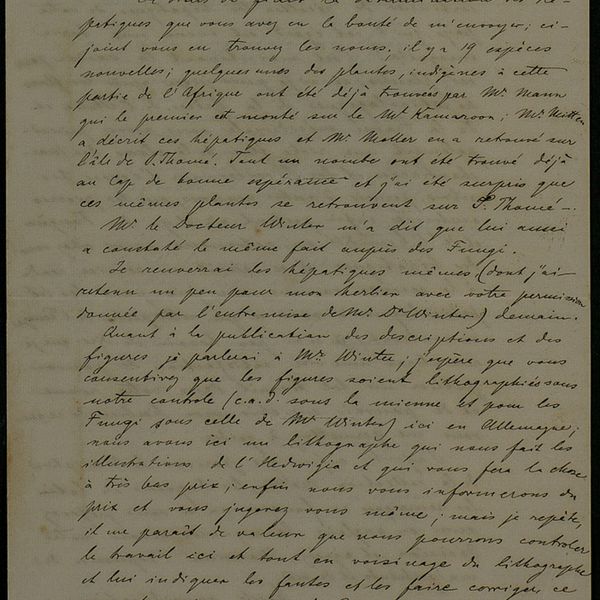 patiques que vous avez eu la bonté de m'envoyer; ci-
joint vous en trouvez les noms, il y a 19 espèces
nouvelles; quelques unes des plantes, indigènes à cette
partie de l'Afrique ont été déjà trouvées par Mr. Mann
qui le premier est monté sur le Mt. Kamaroon; Mr. Mitten
a décrit ces hépatiques et Mr. Moller en a retrouvé sur
l'île de S. Thomé. Tout un nombre ont été trouvé déjà
au Cap de bonne espérance et j'ai été surpris que
ces mêmes plantes se retrouvent sur S. Thomé.
Mr. le Docteur Winter m'a dit que lui aussi
a constaté le même fait auprès des Fungi.
Je renverrai les hépatiques mêmes (dont j'ai
retenu un peu pour mon herbier avec votre permission
donnée par l'entremise de Mr. Dr Winter) demain.
Quant à la publication des descriptions et des
figures je parlerai à Mr. Winter; j'espère que vous
consentirez que les figures soient lithographiées sous
notre controle (c.a.d. sous la mienne et pour les
Fungi sous celle de Mr Winter) ici en Allemagne;
nous avons ici un lithographe qui nous fait les
illustrations de l'Hedwigia et qui vous fera la chose
à très bas prix; enfin nous vous informerons du
prix et vous jugerez vous même; mais je repète,
il me paraît de valeur que nous pourrons controler
le travail ici et tout en voisinage du lithographe
et lui indiquer les fautes et les faire corriger ce